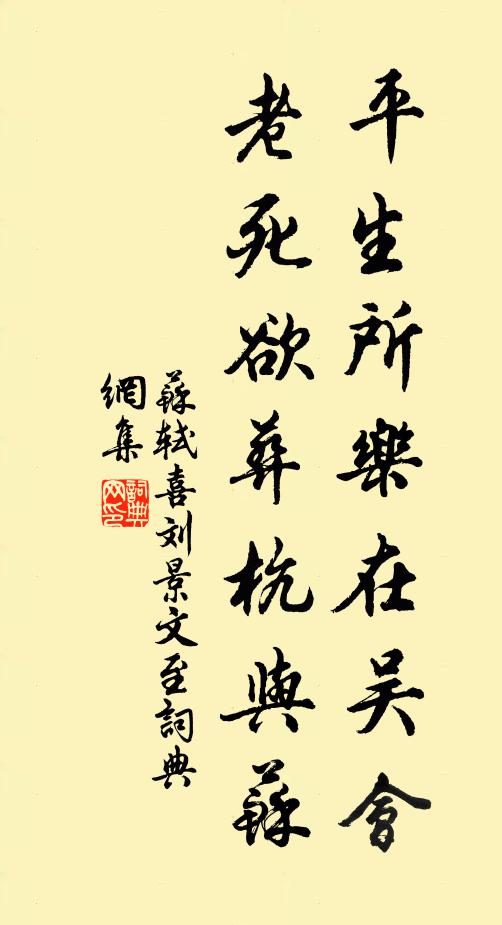 平生所樂在吴會
老死欲葬杭與蘇
蘇軾喜刘景文至詞典
網集
詞典
网印